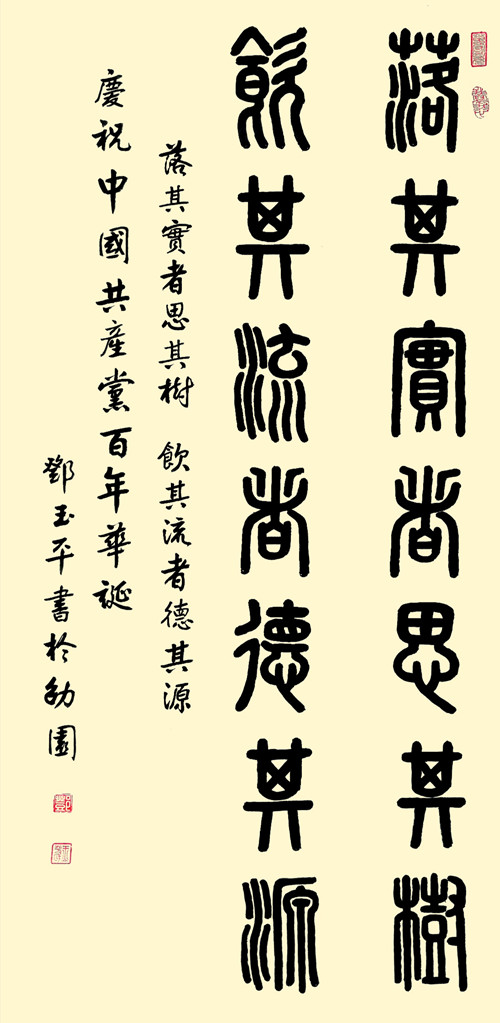 落其實者思其樹
飲其流者德其源
落其實者思其樹 飲其流者德其源
慶祝中國共產黨百年華誕
鄧玉平書於幼園